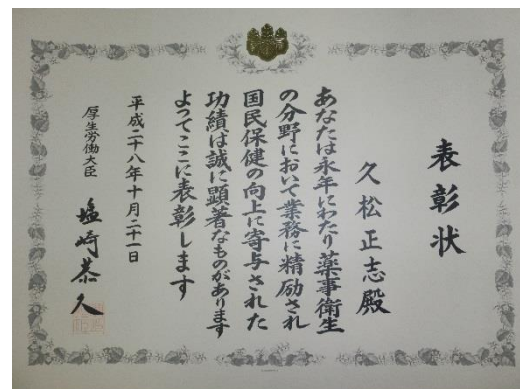 表彰状
久松正志殿
あなたは永年にわたり薬事衛生
の分野において業務に精励され
国民保健の向上に寄与された
功績は誠に顕著なものがあります
よってここに表彰します
平成二十八年十月二十一日
厚生労働大臣 塩崎恭久